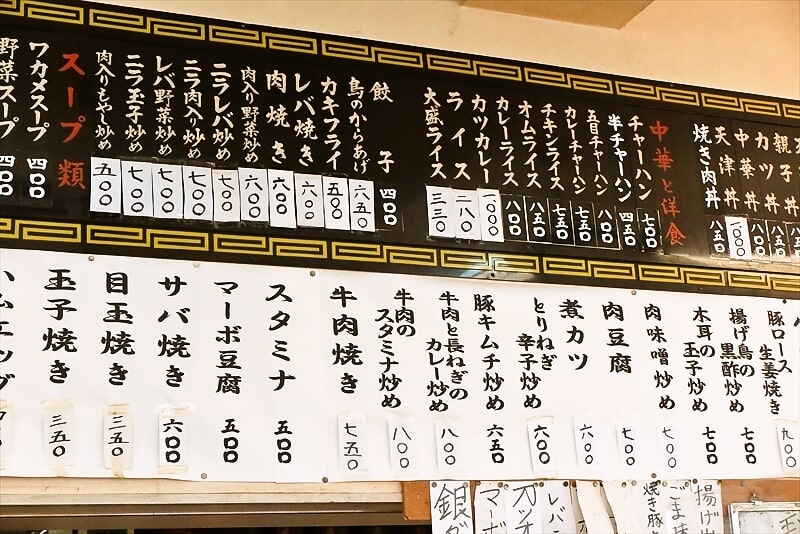 親子丼 八五〇
カツ丼 八〇〇
中華丼 一、〇〇〇
天津丼
焼き肉丼 八五〇
中華と洋食
チャーハン 七〇〇
半チャーハン 四五〇
五目チャーハン 八〇〇
カレーチャーハン 七五〇
チキンライス 七五〇
オムライス 八五〇
カレーライス 八〇〇
カツカレー 一、〇〇〇
ライス 二八〇
大盛ライス 三三〇
餃子 四〇〇
鳥のからあげ 六五〇
カキフライ 五〇〇
レバ焼き 六〇〇
肉焼き 六〇〇
肉入り野菜炒め 六〇〇
ニラレバ炒め 七〇〇
ニラ肉入り炒め 七〇〇
レバ野菜炒め 七〇〇
ニラ玉子炒め 七〇〇
肉入りもやし炒め 五〇〇
スープ類
ワカメスープ 四〇〇
野菜スープ 四〇〇
豚ロース生姜焼き 九〇〇
揚げ鳥の黒酢炒め 七〇〇
木耳の玉子炒め 七〇〇
肉味噌炒め 七〇〇
肉豆腐 七〇〇
煮カツ 六〇〇
とりねぎ辛子炒め 六〇〇
豚キムチ炒め 六五〇
牛肉と長ねぎのカレー炒め 八〇〇
牛肉のスタミナ炒め 八〇〇
牛肉焼き 七五〇
スタミナ 五〇〇
マーボ豆腐 五〇〇
サバ焼き 六〇〇
目玉焼き 三五〇
玉子焼き 三五〇
ハムエッグ
揚げ
ごま味
焼き豚
レバニ
カツオ
マーボ
銀ダ